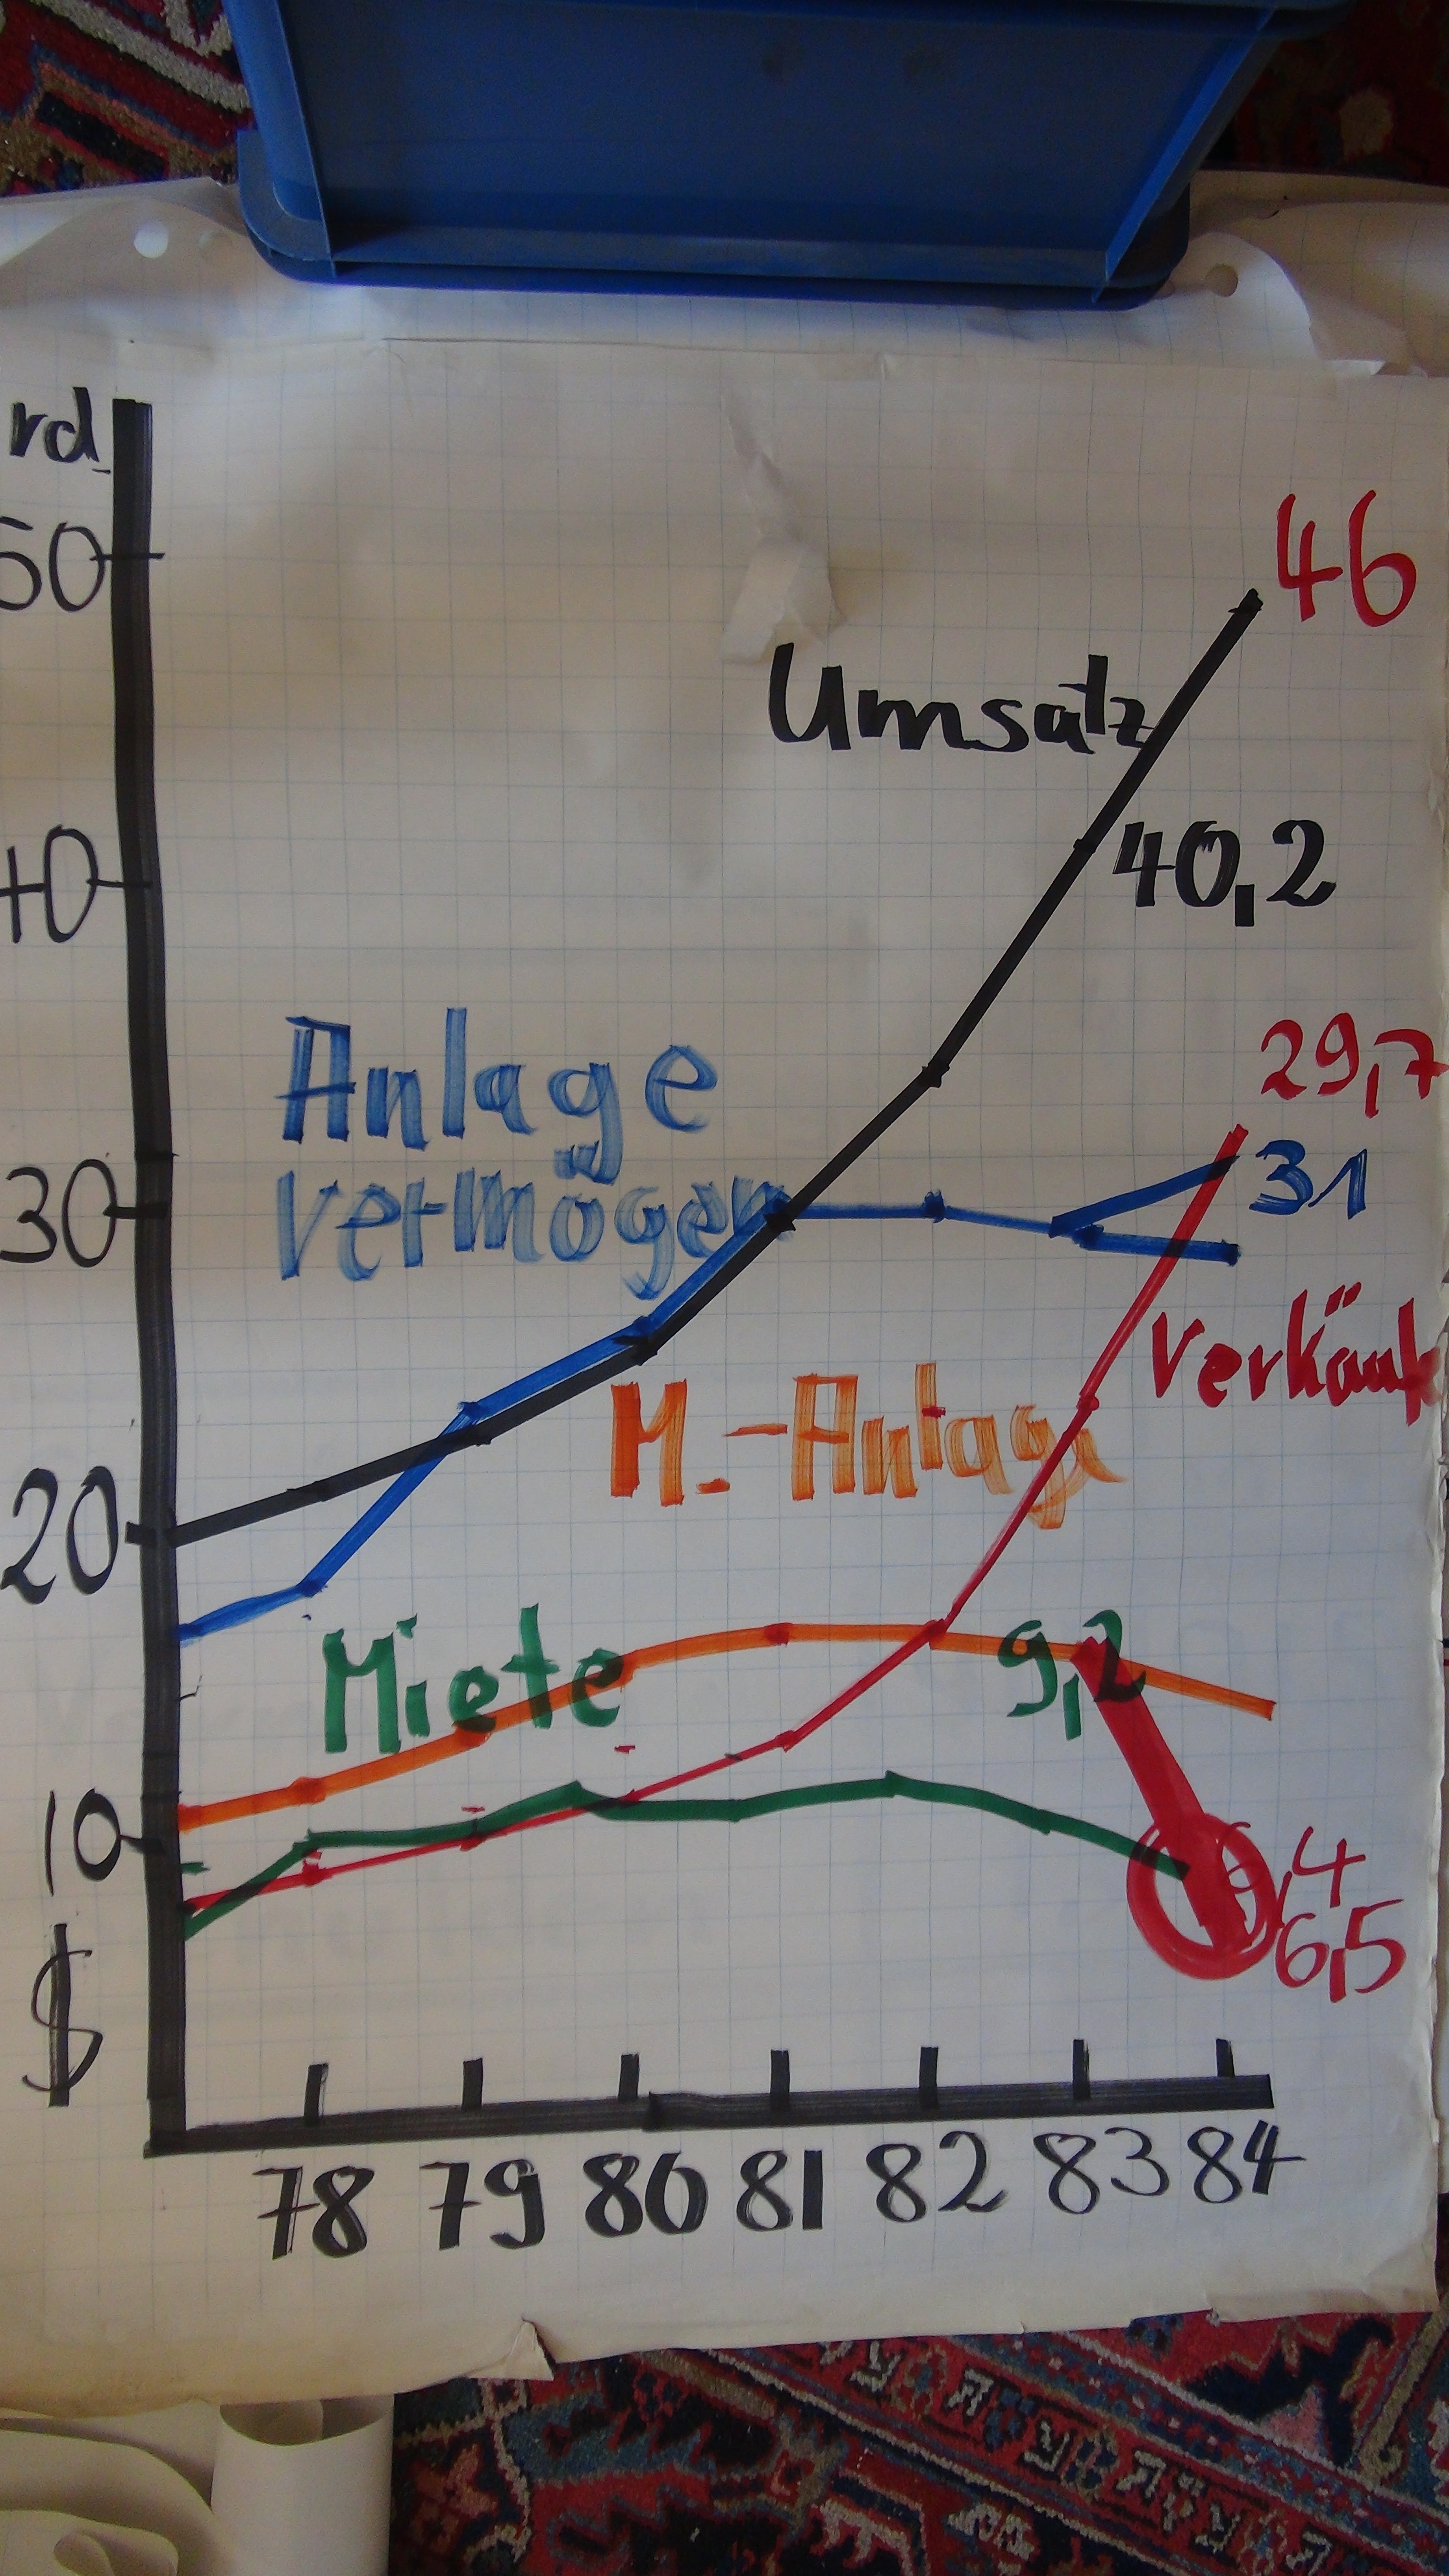 rd.
50
46
Umsatz
40,2
40
Anlage
vermögen
29,7
31
30
Verkäufe
M.-Anlage
20
Miete
9,2
10
6,5
$
78 79 80 81 82 83 84